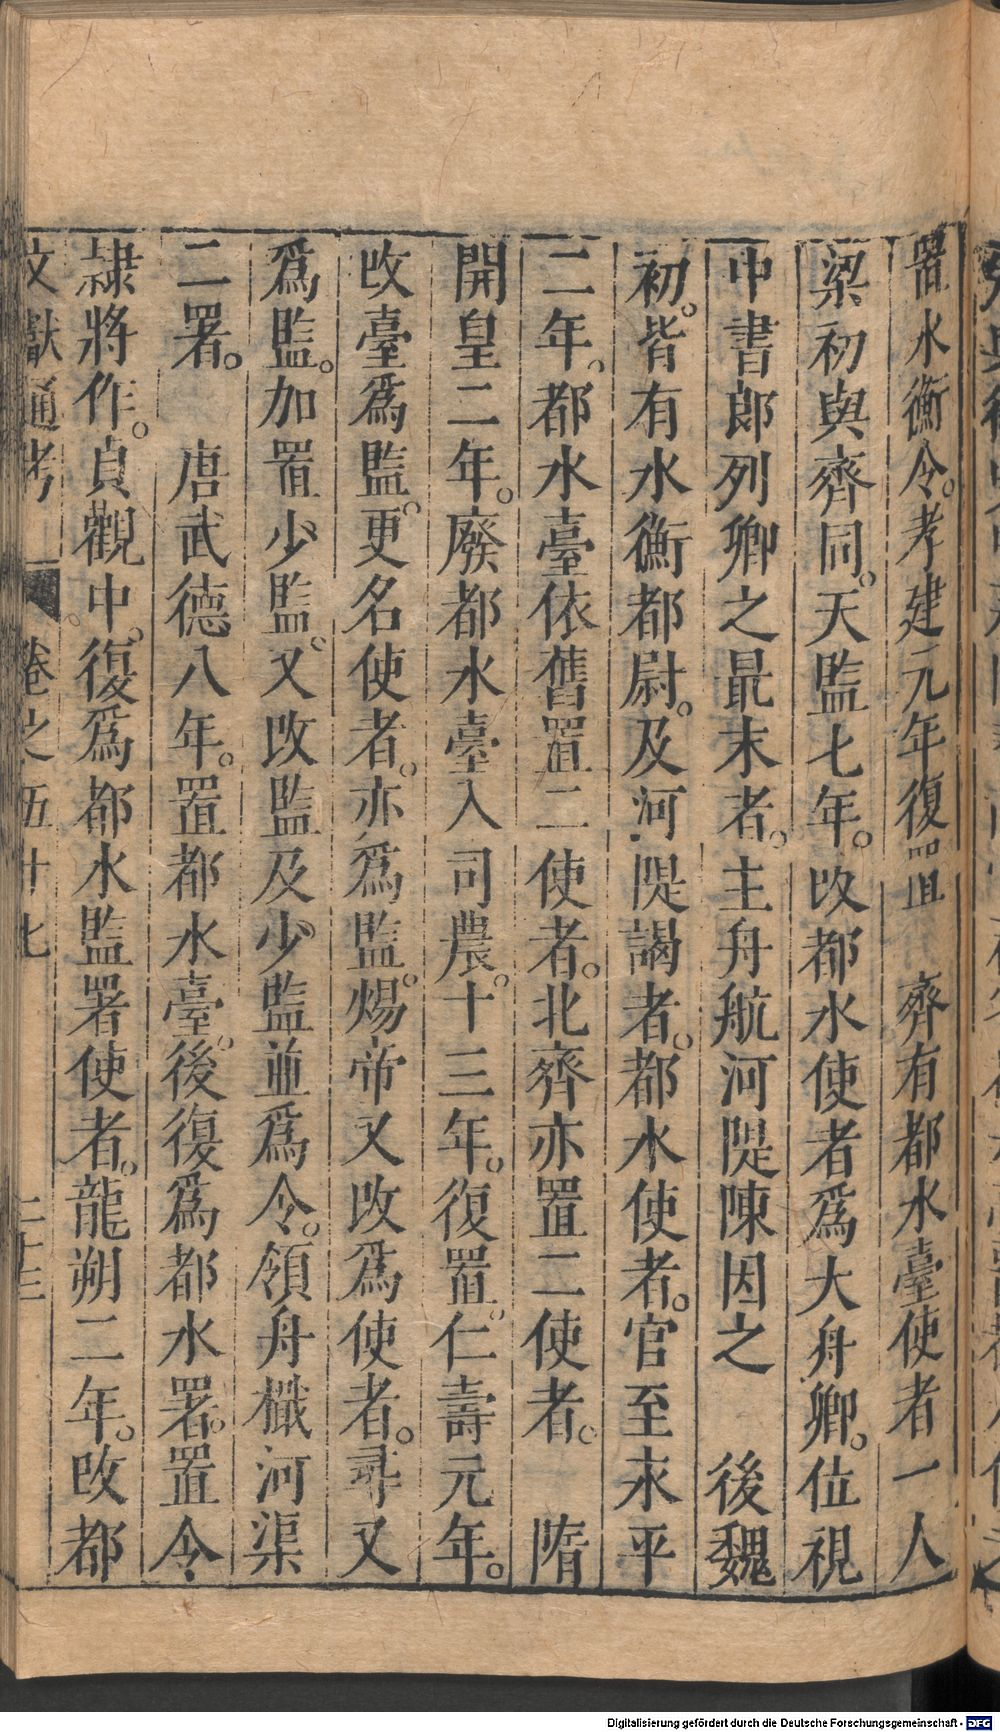 置水衡令。孝建元年復置　齊有都水臺使者一人
梁初與齊同。天監七年。改都水使者爲大舟卿。位視
中書郎列卿之最末者。主舟航河隄陳因之　後魏
初。皆有水衡都尉。及河隄謁者。都水使者。官至永平
二年。都水臺依舊置二使者。北齊亦置二使者。　隋
開皇二年。廢都水臺入司農。十三年。復置。仁壽元年。
改臺爲監。更名使者。亦爲監。煬帝又改爲使者。尋又
爲監。加置少監。又改監及少監並爲令。領舟檝河渠
二署。　唐武德八年。置都水臺。後復爲都水署。置令
隸將作。貞觀中。復爲都水監署使者。龍朔二年。改都
文獻通考　卷之五十七　二十三
Digitalisierung gefördert durch die Deutsche Forschungsgemeinschaft - DFG